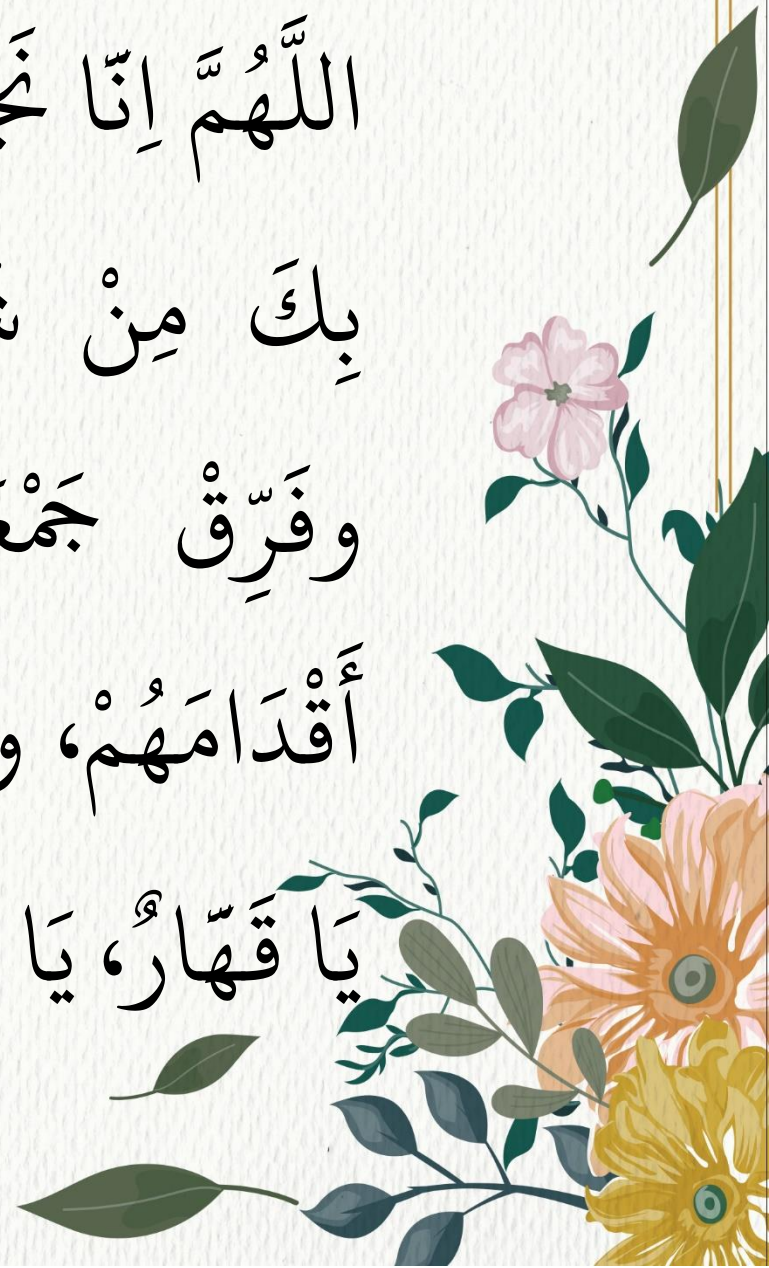 اللَّهُمَّ اِنّا
بِكَ مِنْ
وفَرِّقْ
أَقْدَامَهُمْ، و
يَا قَهّارٌ، يَا